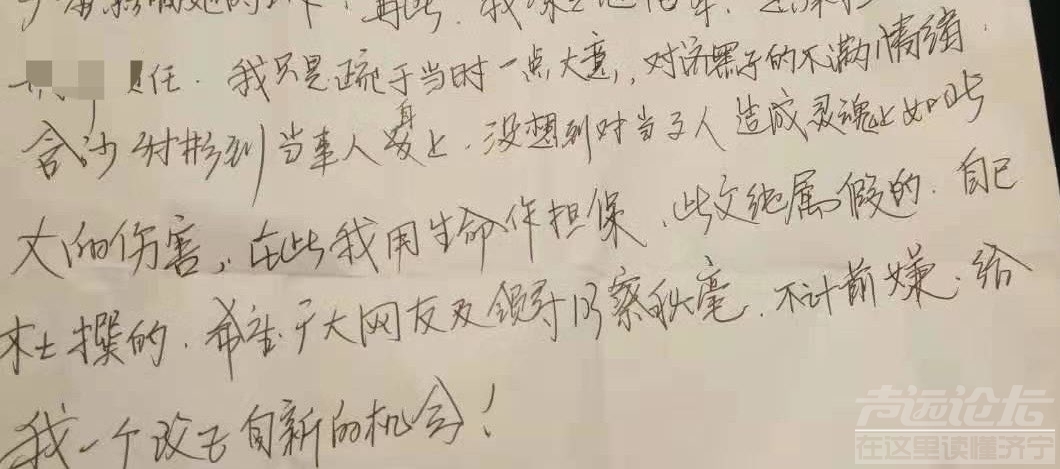 任. 我只是疏于当时一点大意,, 对济黑子的不满情绪.
含沙射影到当事人身上. 没想到对当了人造成灵魂上如此
大的伤害,, 在此我用生命作担保. 此文纯属假的. 自己
杜撰的. 希望广大网友及领导明察秋毫. 不计前嫌. 给
我一个改过自新的机会!
声远论坛
在这里读懂济宁